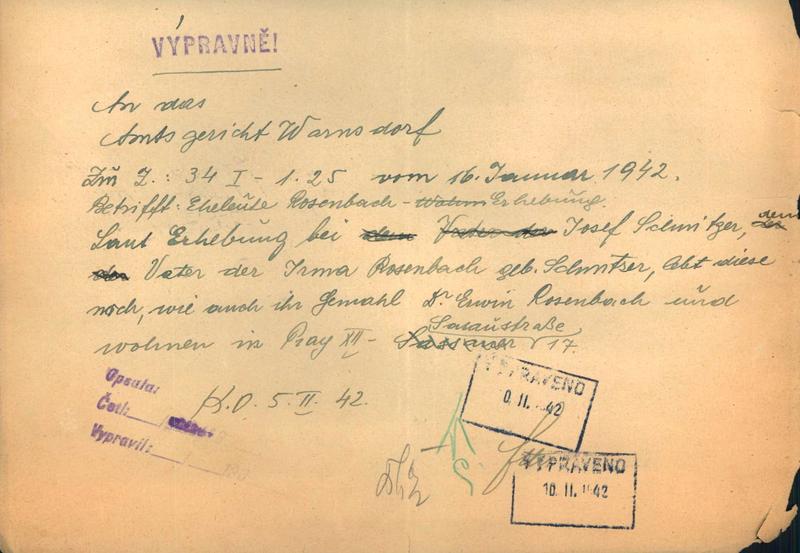 VÝPRAVNĚ!
An das
Amtsgericht Warnsdorf
Zu Z.: 34 I - 1.25 vom 16. Januar 1942.
Betrifft: Eheleute Rosenbach - Erhebung.
Laut Erhebung bei den Vater der Josef Schnitzer, dem
Vater der Irma Rosenbach geb. Schnitzer, lebt diese
noch, wie auch ihr Gemahl Dr Erwin Rosenbach und
wohnen in Prag XII - Sasaustraße 17.
Opsala:
Četl:
Vypravil:
K.O. 5. II. 42.
VYPRAVENO
0. II. 42
VYPRAVENO
10. II. 42